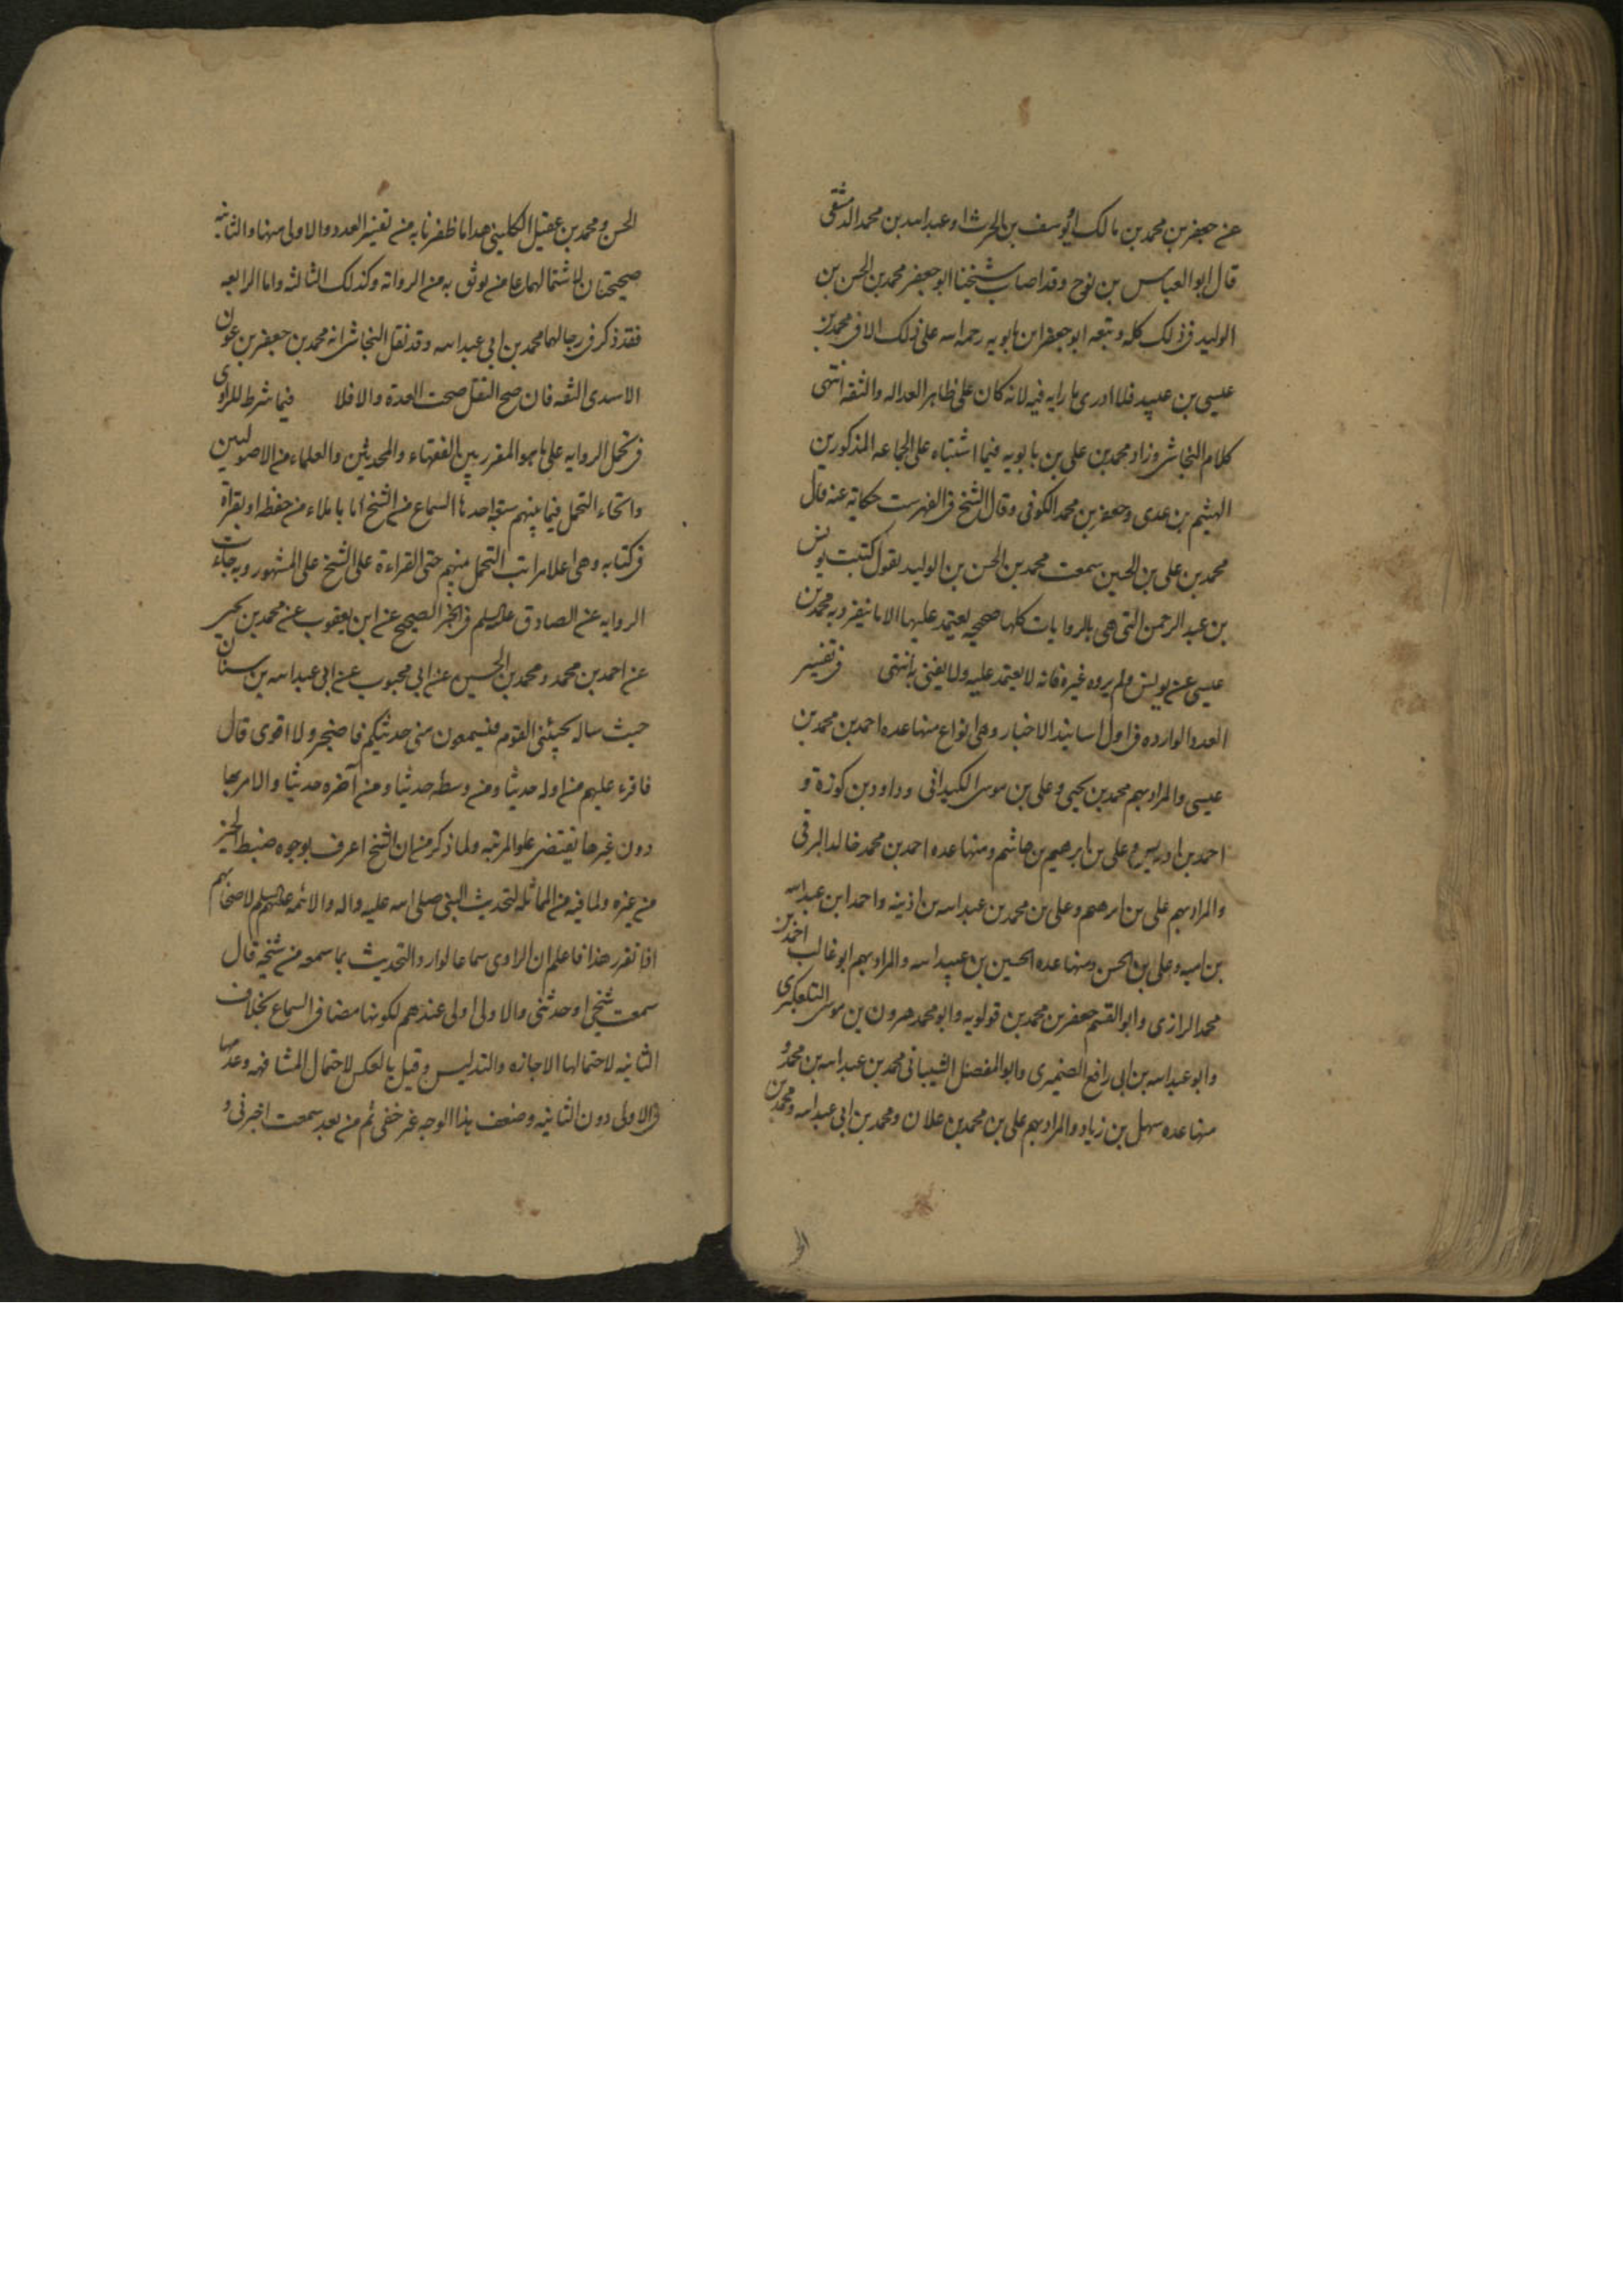 عن جعفر بن محمد بن مالك او يوسف بن الحرث او عبد الله بن محمد الدمشقى
قال ابو العباس بن نوح وقد اصاب شيخنا ابو جعفر محمد بن الحسن بن
الوليد فى ذلك كله وتبعه ابو جعفر ابن بابويه رحمه الله على ذلك الا فى محمد بن
عيسى بن عبيد فلا ادرى ما رايه فيه لانه كان على ظاهر العداله والثقه انتهى
كلام النجاشى وزاد محمد بن على بن بابويه فيما استثناه على الجماعه المذكورين
الهيثم بن عدى وجعفر بن محمد الكوفى وقال الشيخ فى الفهرست حكاية عنه قال
محمد بن على بن الحسين سمعت محمد بن الحسن بن الوليد يقول كتب يونس
بن عبد الرحمن التى هى بالروايات كلها صحيحه يعتمد عليها الا ما ينفرد به محمد بن
عيسى عن يونس ولم يروه غيره فانه لا يعتمد عليه ولا يفتى به انتهى فى تفسير
العدد الوارده فى اول اسانيد الاخبار وهى انواع منها عده احمد بن محمد بن
عيسى والمراد بهم محمد بن يحيى وعلى بن موسى الكميدانى وداود بن كوزة و
احمد بن ادريس وعلى بن ابرهيم بن هاشم ومنها عده احمد بن محمد خالد البرقى
والمراد بهم على بن ابرهيم وعلى بن محمد بن عبد الله بن اذينه واحمد ابن عبد الله
بن اميه وعلى بن الحسن ومنها عده الحسين بن عبيد الله والمراد بهم ابو غالب احمد بن
محمد الرازى وابو القسم جعفر بن محمد بن قولويه وابو محمد هرون بن موسى التلعكبرى
وابو عبد الله بن ابى رافع الصيمرى وابو المفضل الشيبانى محمد بن عبد الله بن محمد و
منها عده سهل بن زياد والمراد بهم على بن محمد بن علان ومحمد بن ابى عبد الله ومحمد بن
الحسن ومحمد بن عقيل الكلينى هذا ما ظفرنا به من تفسير العدد والاولى منها والثانيه
صحيحتان لاشتمالهما على من يوثق به من الرواة وكذلك الثالثه واما الرابعه
فقد ذكر فى رجالها محمد بن ابى عبد الله وقد نقل النجاشى انه محمد بن جعفر بن عون
الاسدى الثقه فان صح النقل صحت العدة والا فلا فيما شرط للراوى
فى تحمل الروايه على ما هو المقرر بين الفقهاء والمحدثين والعلماء من الاصوليين
وانحاء التحمل فيما بينهم سبعة احدها السماع من الشيخ اما باملاء من حفظه او بقراة
فى كتابه وهى اعلا مراتب التحمل منهم حتى القراءة على الشيخ على المشهور وبه جاءت
الروايه عن الصادق عليه السلم فى الخبر الصحيح عن ابن يعقوب عن محمد بن يحيى
عن احمد بن محمد ومحمد بن الحسين عن ابى محبوب عن ابى عبد الله بن سنان
حيث ساله يجيئنى القوم فيسمعون منى حديثكم فاضجر ولا اقوى قال
فاقرء عليهم من اوله حديثا ومن وسطه حديثا ومن آخره حديثا والامر بها
دون غيرها يقتضى علو المرتبه ولما ذكر من ان الشيخ اعرف بوجوه ضبط الخبر
من غيره ولما فيه من المماثله لتحديث النبى صلى الله عليه واله والائمه عليهم السلم لاصحابهم
اذا تقرر هذا فاعلم ان الراوى سماعا لو اراد التحديث بما سمعه من شيخه قال
سمعت شيخى او حدثنى والاولى اولى عندهم لكونها مضافى السماع بخلاف
الثانيه لاحتمالها الاجازه والتدليس وقيل بالعكس لاحتمال المشافهه وعدمها
فى الاولى دون الثانيه وضعف هذا الوجه غير خفى ثم من بعد سمعت اخبرنى و